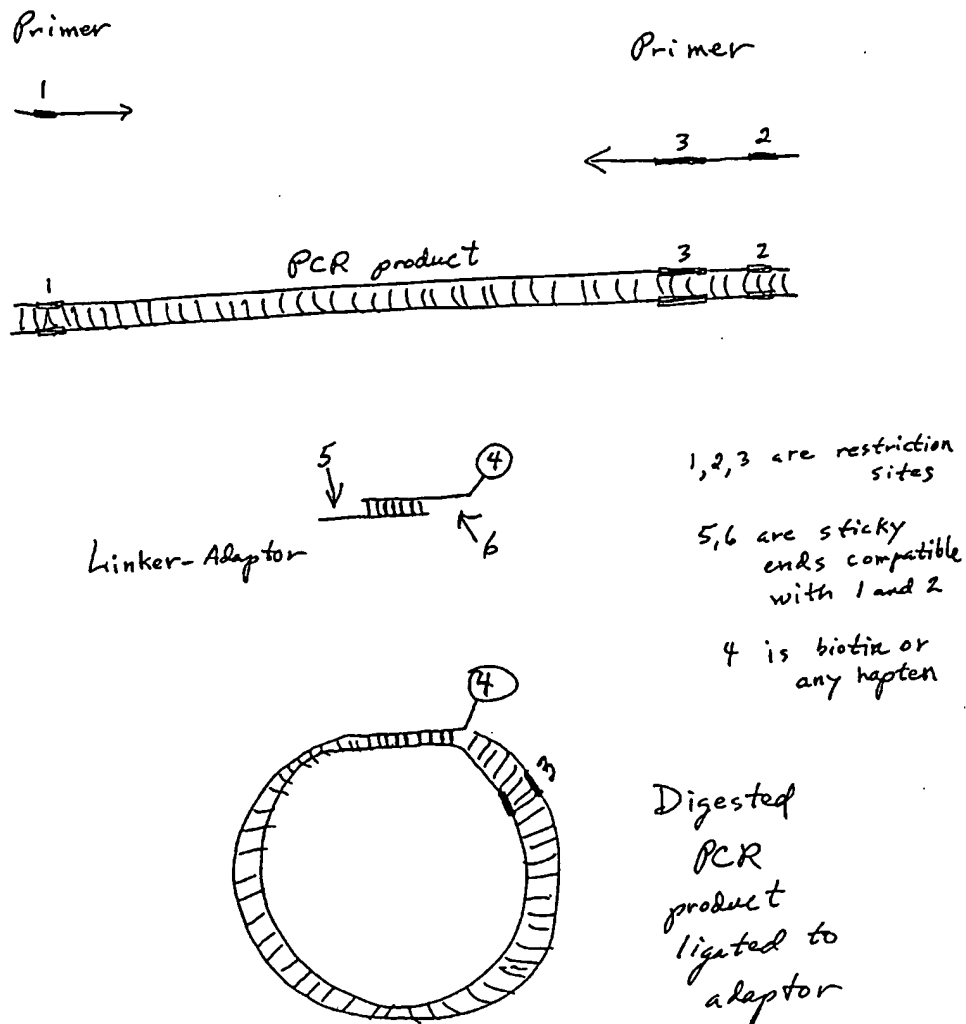 Primer
1
Primer
3 2
PCR product
1
3 2
5
4
6
Linker-Adaptor
1,2,3 are restriction
sites
5,6 are sticky
ends compatible
with 1 and 2
4 is biotin or
any hapten
4
3
Digested
PCR
product
ligated to
adaptor